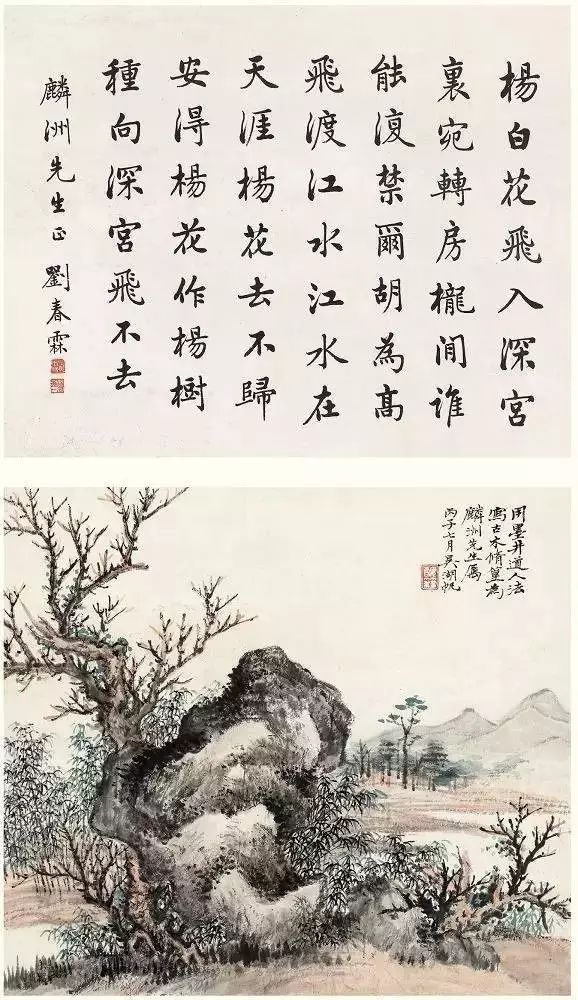 楊白花飛入深宮
裏宛轉房櫳間誰
能復禁爾胡為高
飛渡江水江水在
天涯楊花去不歸
安得楊花作楊樹
種向深宮飛不去
麟洲先生正 劉春霖
用墨井道人法
寫古木脩篁為
麟洲先生属
丙子七月吳湖帆